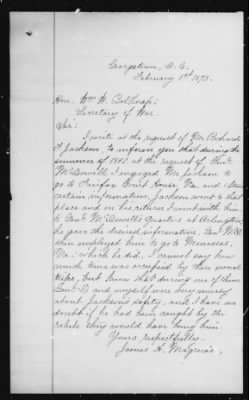 Georgetown, D. C.
February 1st 1873.
Hon. Wm W. Belknap;
Secretary of War.
Sir:
I write at the request of Mr. Richard
Jackson to inform you that during the
summer of 1861 at the request of Genl.
McDowell I engaged Mr. Jackson to
go to Fairfax Court House, Va. and
certain information, Jackson went to that
place and on his return I went with him
to Genl. McDowell's Quarters at Arlington,
he gave the desired information, Genl. McD
then employed him to go to Manassas,
Va. which he did. I cannot say how
much time was occupied by these several
trips, but know that during one of them
Genl. and myself were very uneasy
about Jackson's safety, and I have no
doubt if he had been caught by the
rebels they would have hung him.
Yours respectfully.
James A. Magruder